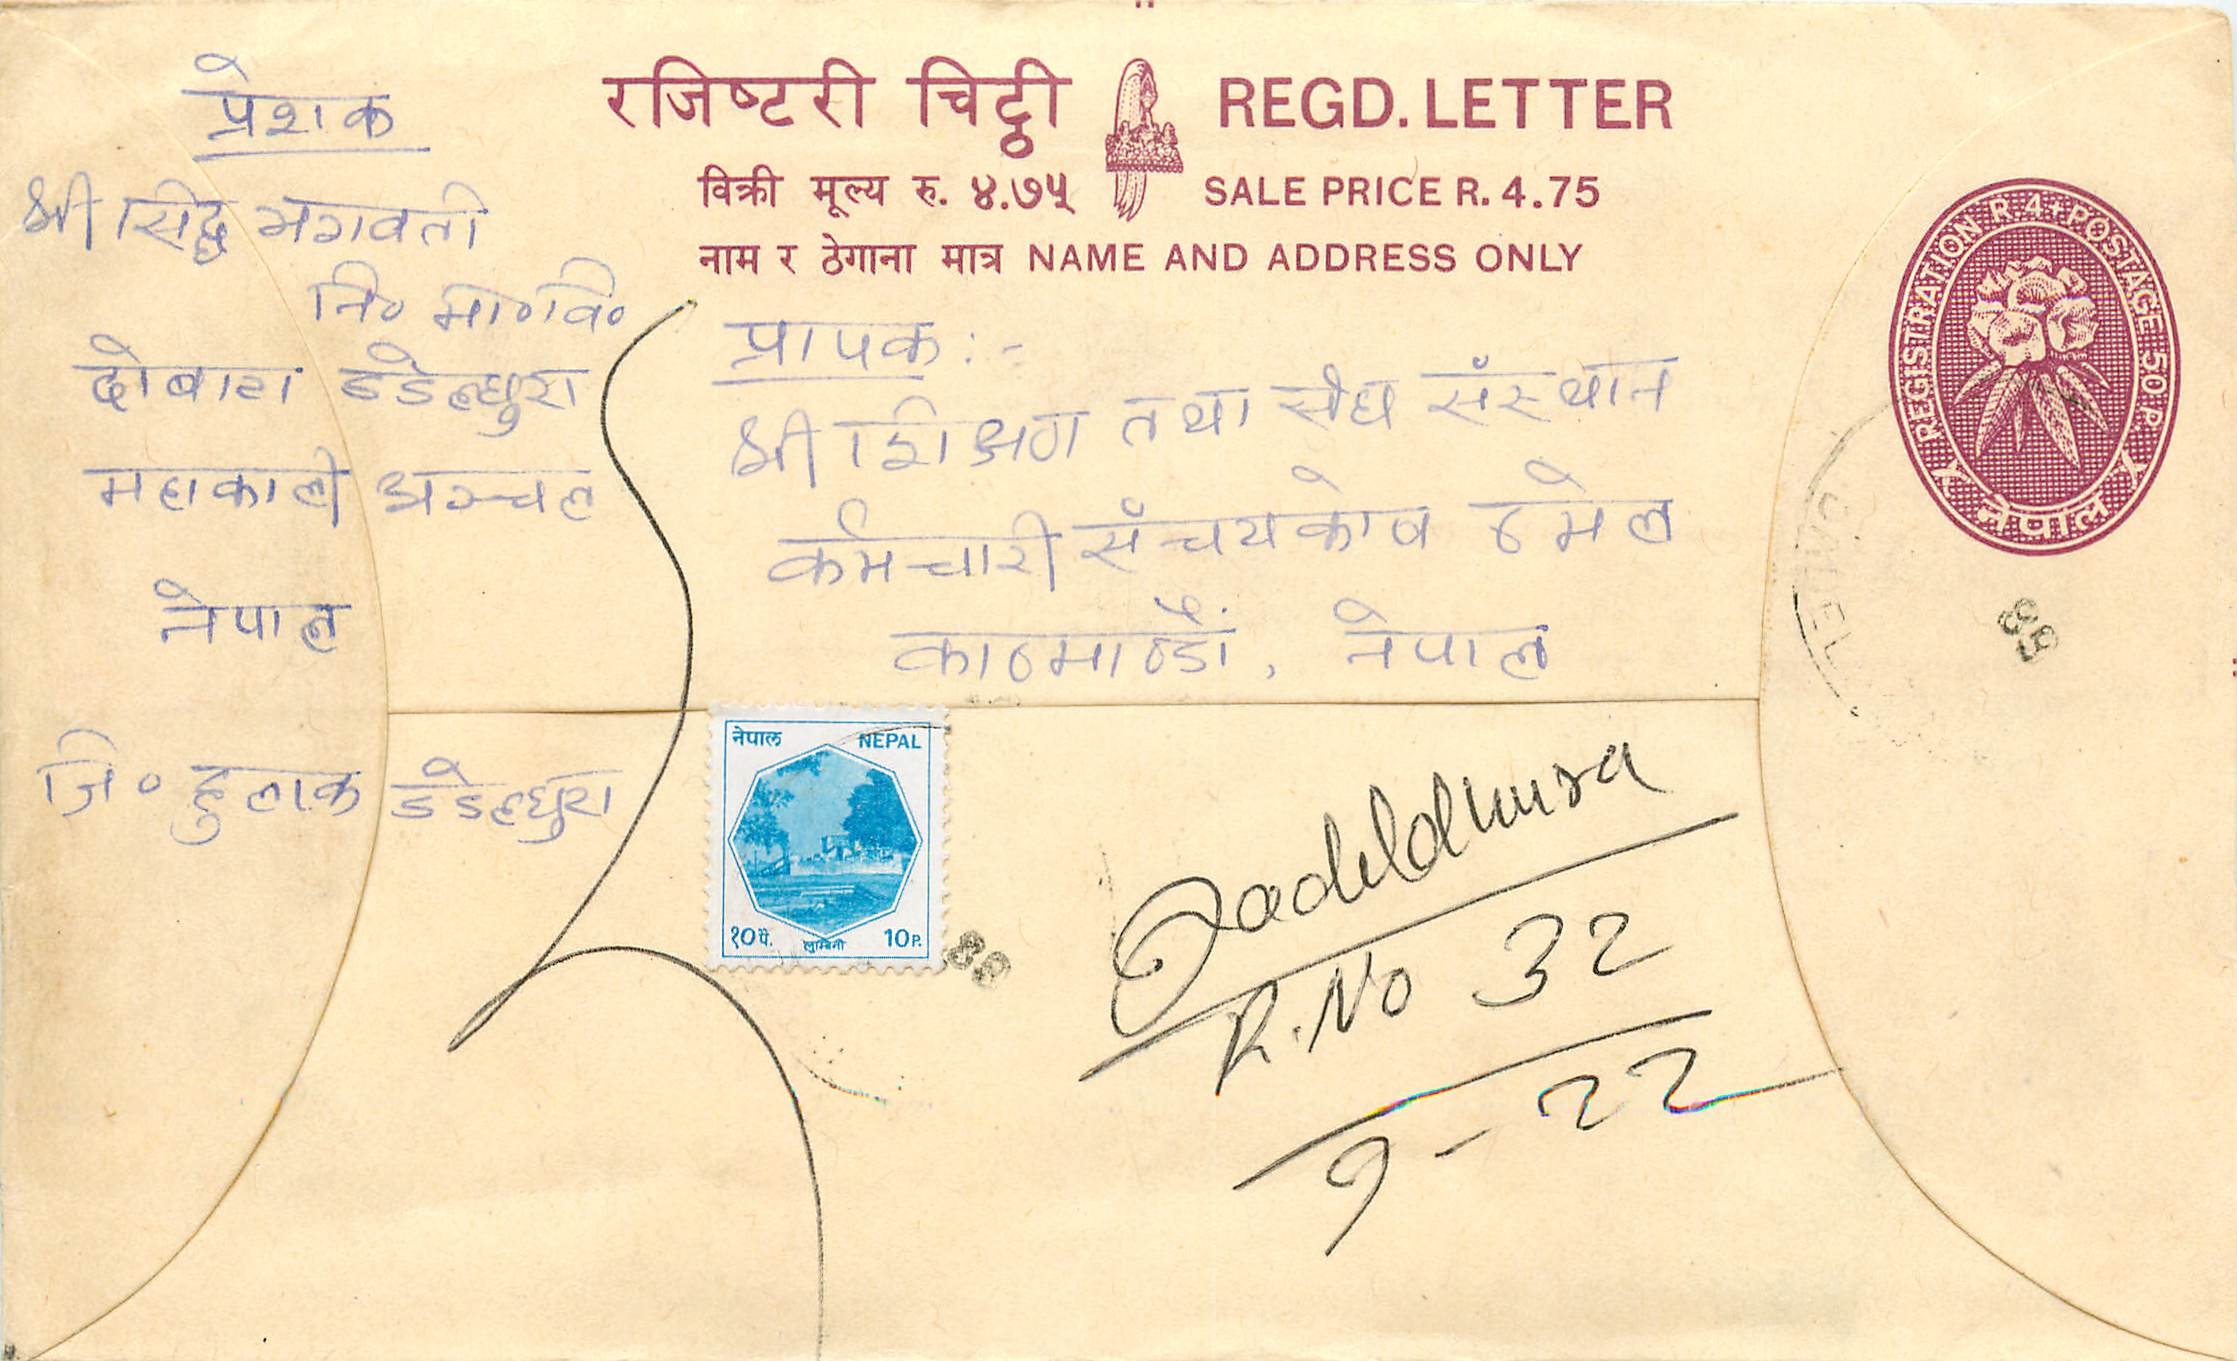 रजिष्टरी चिट्ठी REGD. LETTER
विक्री मूल्य रु. ४.७५ SALE PRICE R. 4.75
नाम र ठेगाना मात्र NAME AND ADDRESS ONLY
प्रेशक
श्री सिद्ध भगवती
नि० मा० वि०
डडेल्धुरा
महाकाली अञ्चल
नेपाल
जि० हुलाक डडेल्धुरा
प्रापक :-
श्री शिक्षण तथा संस्थान
कर्मचारी संचयकोष ठमेल
काठमाण्डौं, नेपाल
REGISTRATION R. 4 + POSTAGE 50 P.
नेपाल
नेपाल NEPAL
१० पै. लुम्बिनी 10 P.
88
88
Dadeldhura
R. No 32
9-22